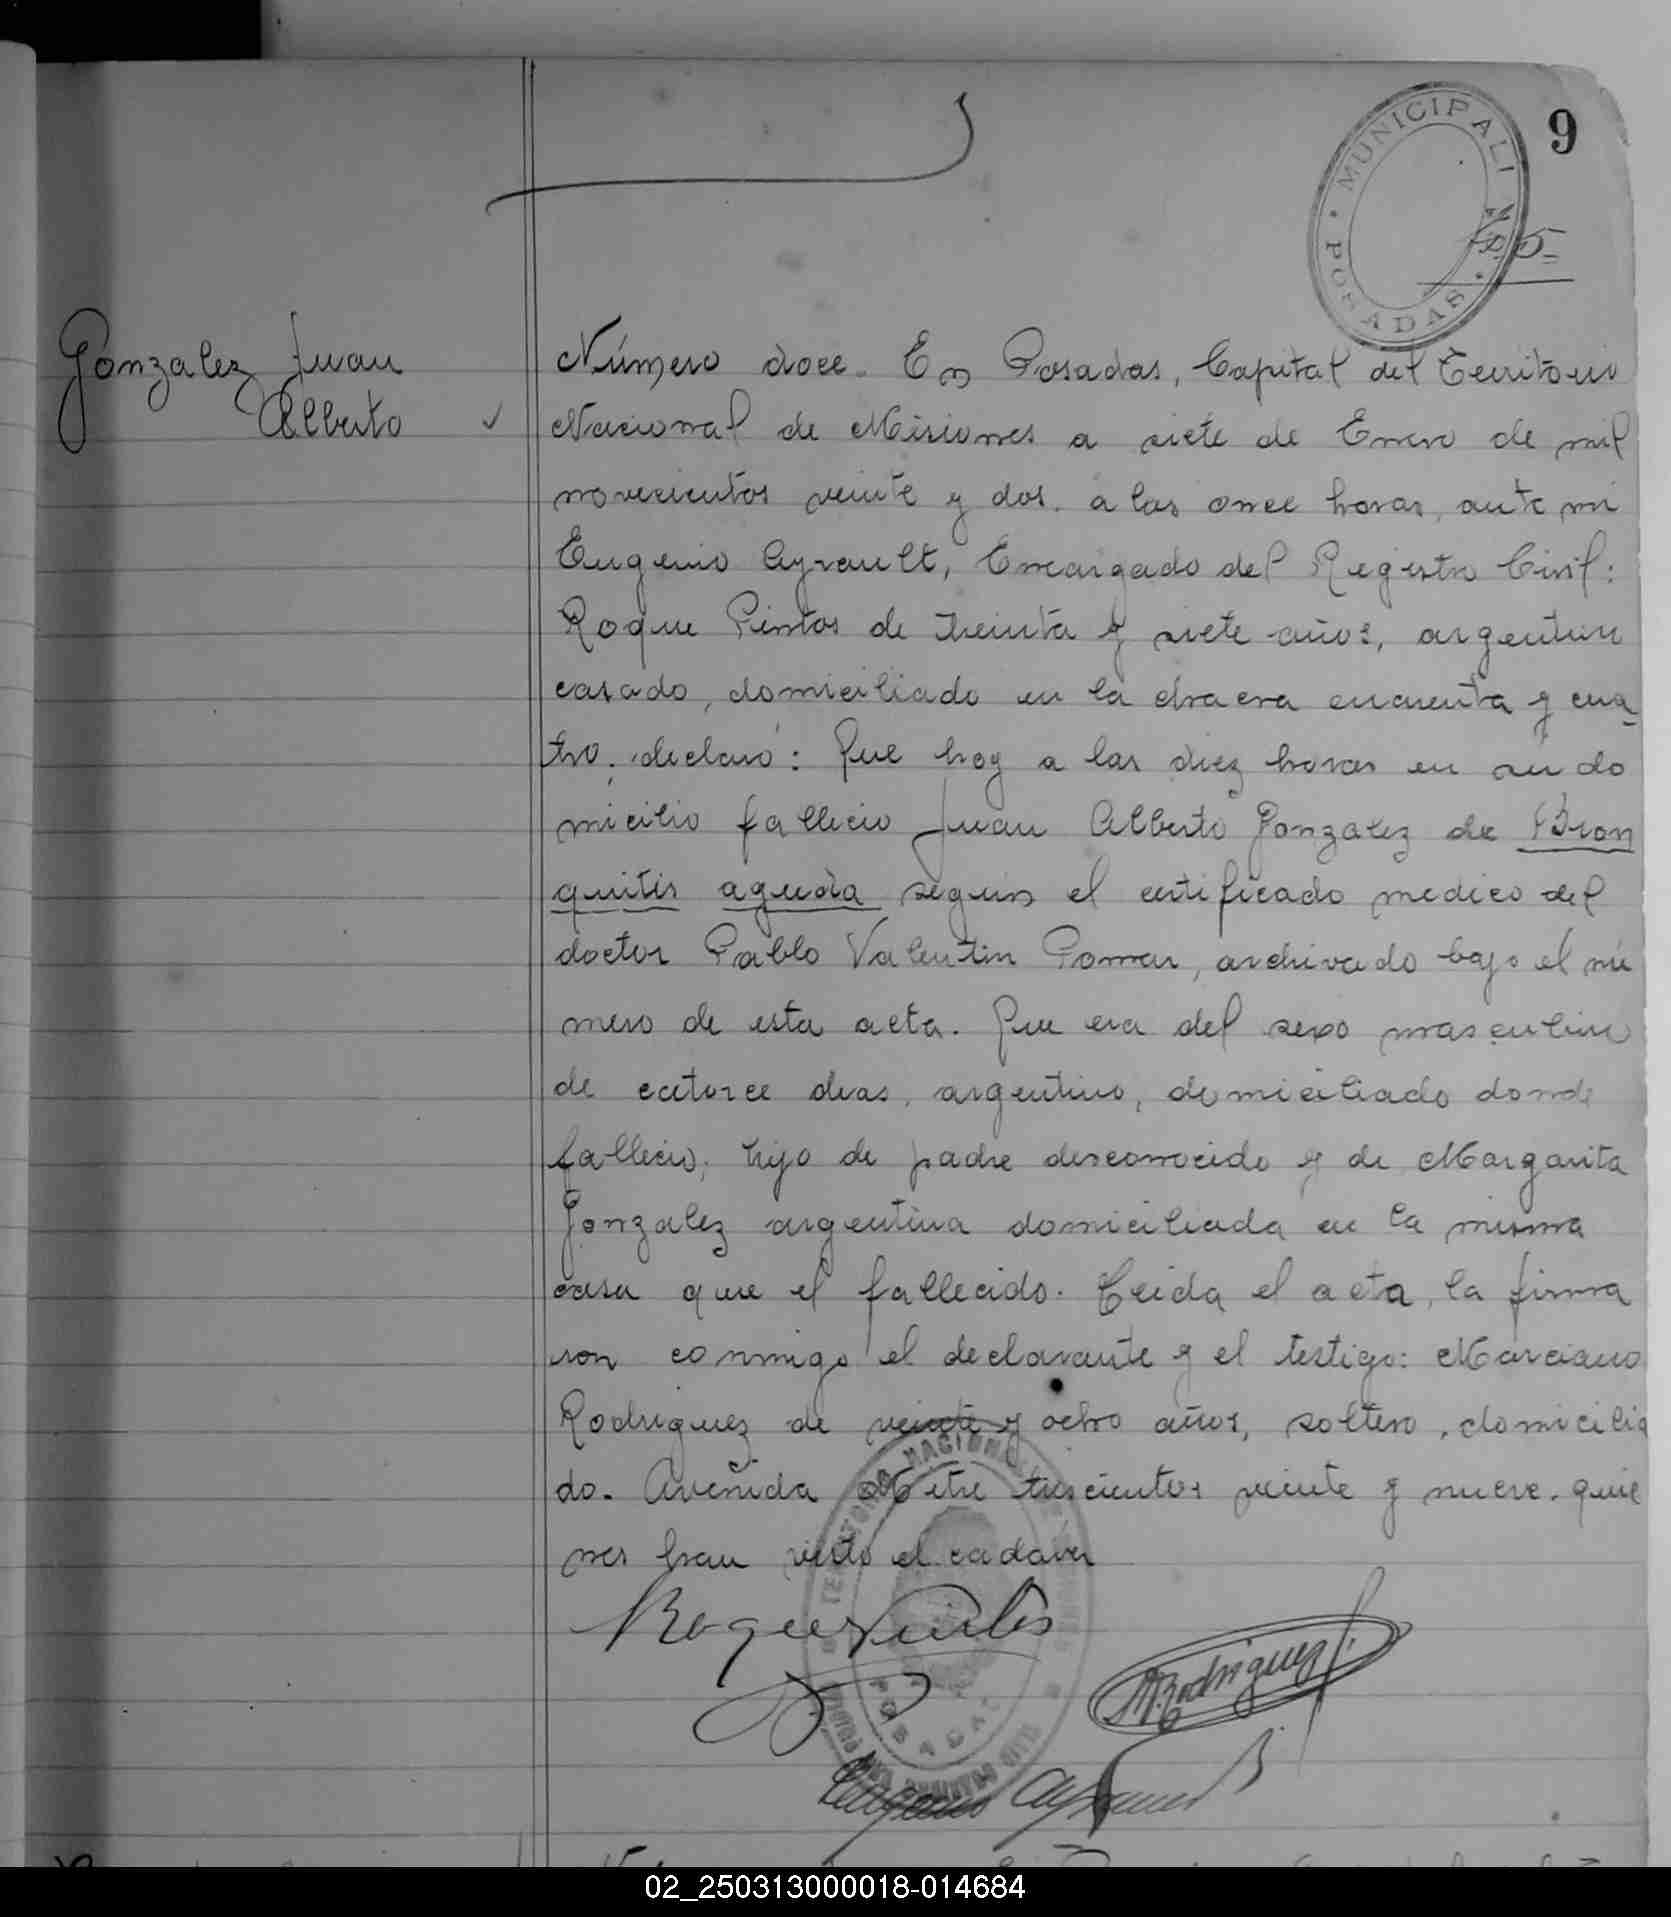 9
MUNICIPALI
POSADAS
Gonzalez Juan
Alberto
Número doce. En Posadas, Capital del Territorio
Nacional de Misiones a siete de Enero de mil
novecientos veinte y dos. a las once horas, ante mi
Eugenio Ayrault, Encargado del Registro Civil:
Roque Pintos de treinta y siete años, argentino
casado, domiciliado en la chacra cincuenta y cua
tro, declaró: Que hoy a las diez horas en su do
micilio fallecio Juan Alberto Gonzalez de Bron
quitis aguda segun el certificado medico del
doctor Pablo Valentin Pomar, archivado bajo el nu
mero de esta acta. Que era del sexo masculino
de catorce dias, argentino, domiciliado donde
fallecio, hijo de padre desconocido y de Margarita
Gonzalez argentina domiciliada en la misma
casa que el fallecido. Leida el acta, la firma
ron conmigo el declarante y el testigo: Marciano
Rodriguez de veinte y ocho años, soltero, domicilia
do. Avenida Mitre trescientos veinte y nueve. quie
nes han visto el cadaver
Roque Pintos
M Rodriguez
Eugenio Ayrault
TERRITORIO NACIONAL
POSADAS
02_250313000018-014684